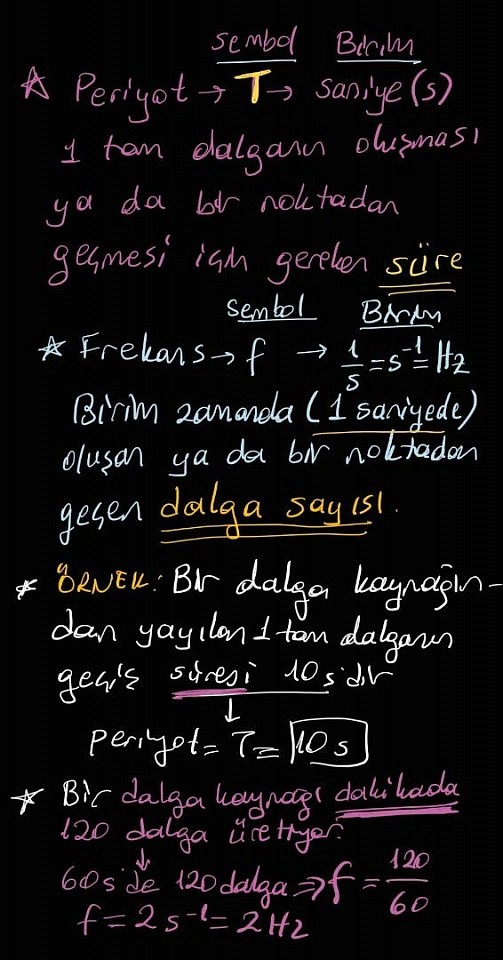 sembol Birim
☆ Periyot → T → saniye (s)
1 tam dalganın oluşması
ya da bir noktadan
geçmesi için gereken süre
sembol Birim
☆ Frekans → f → 1/s = s⁻¹ = Hz
Birim zamanda (1 saniyede)
oluşan ya da bir noktadan
geçen dalga sayısı.
* ÖRNEK: Bir dalga kaynağın-
dan yayılan 1 tam dalganın
geçiş süresi 10 s'dir
↓
Periyot = T = 10 s
☆ Bir dalga kaynağı dakikada
120 dalga üretiyor.
↓
60 s'de 120 dalga ⇒ f = 120/60
f = 2 s⁻¹ = 2 Hz